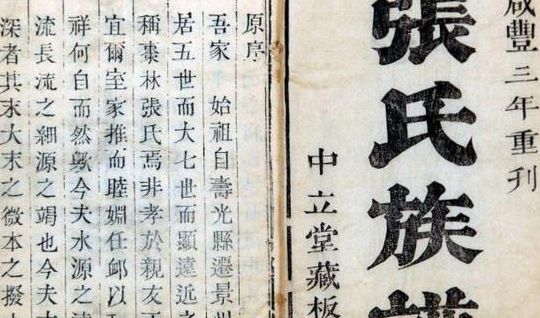 咸豐三年重刊
張氏族譜
中立堂藏板
原序
吾家 始祖自壽光縣遷景州
居五世而大七世而顯遠近之
稱棗林張氏焉非孝於親友
宜爾室家推而睦婣任卹以
祥何自而然歟今夫水源之
流長流之細源之竭也今夫
深者其末大末之微本之撥